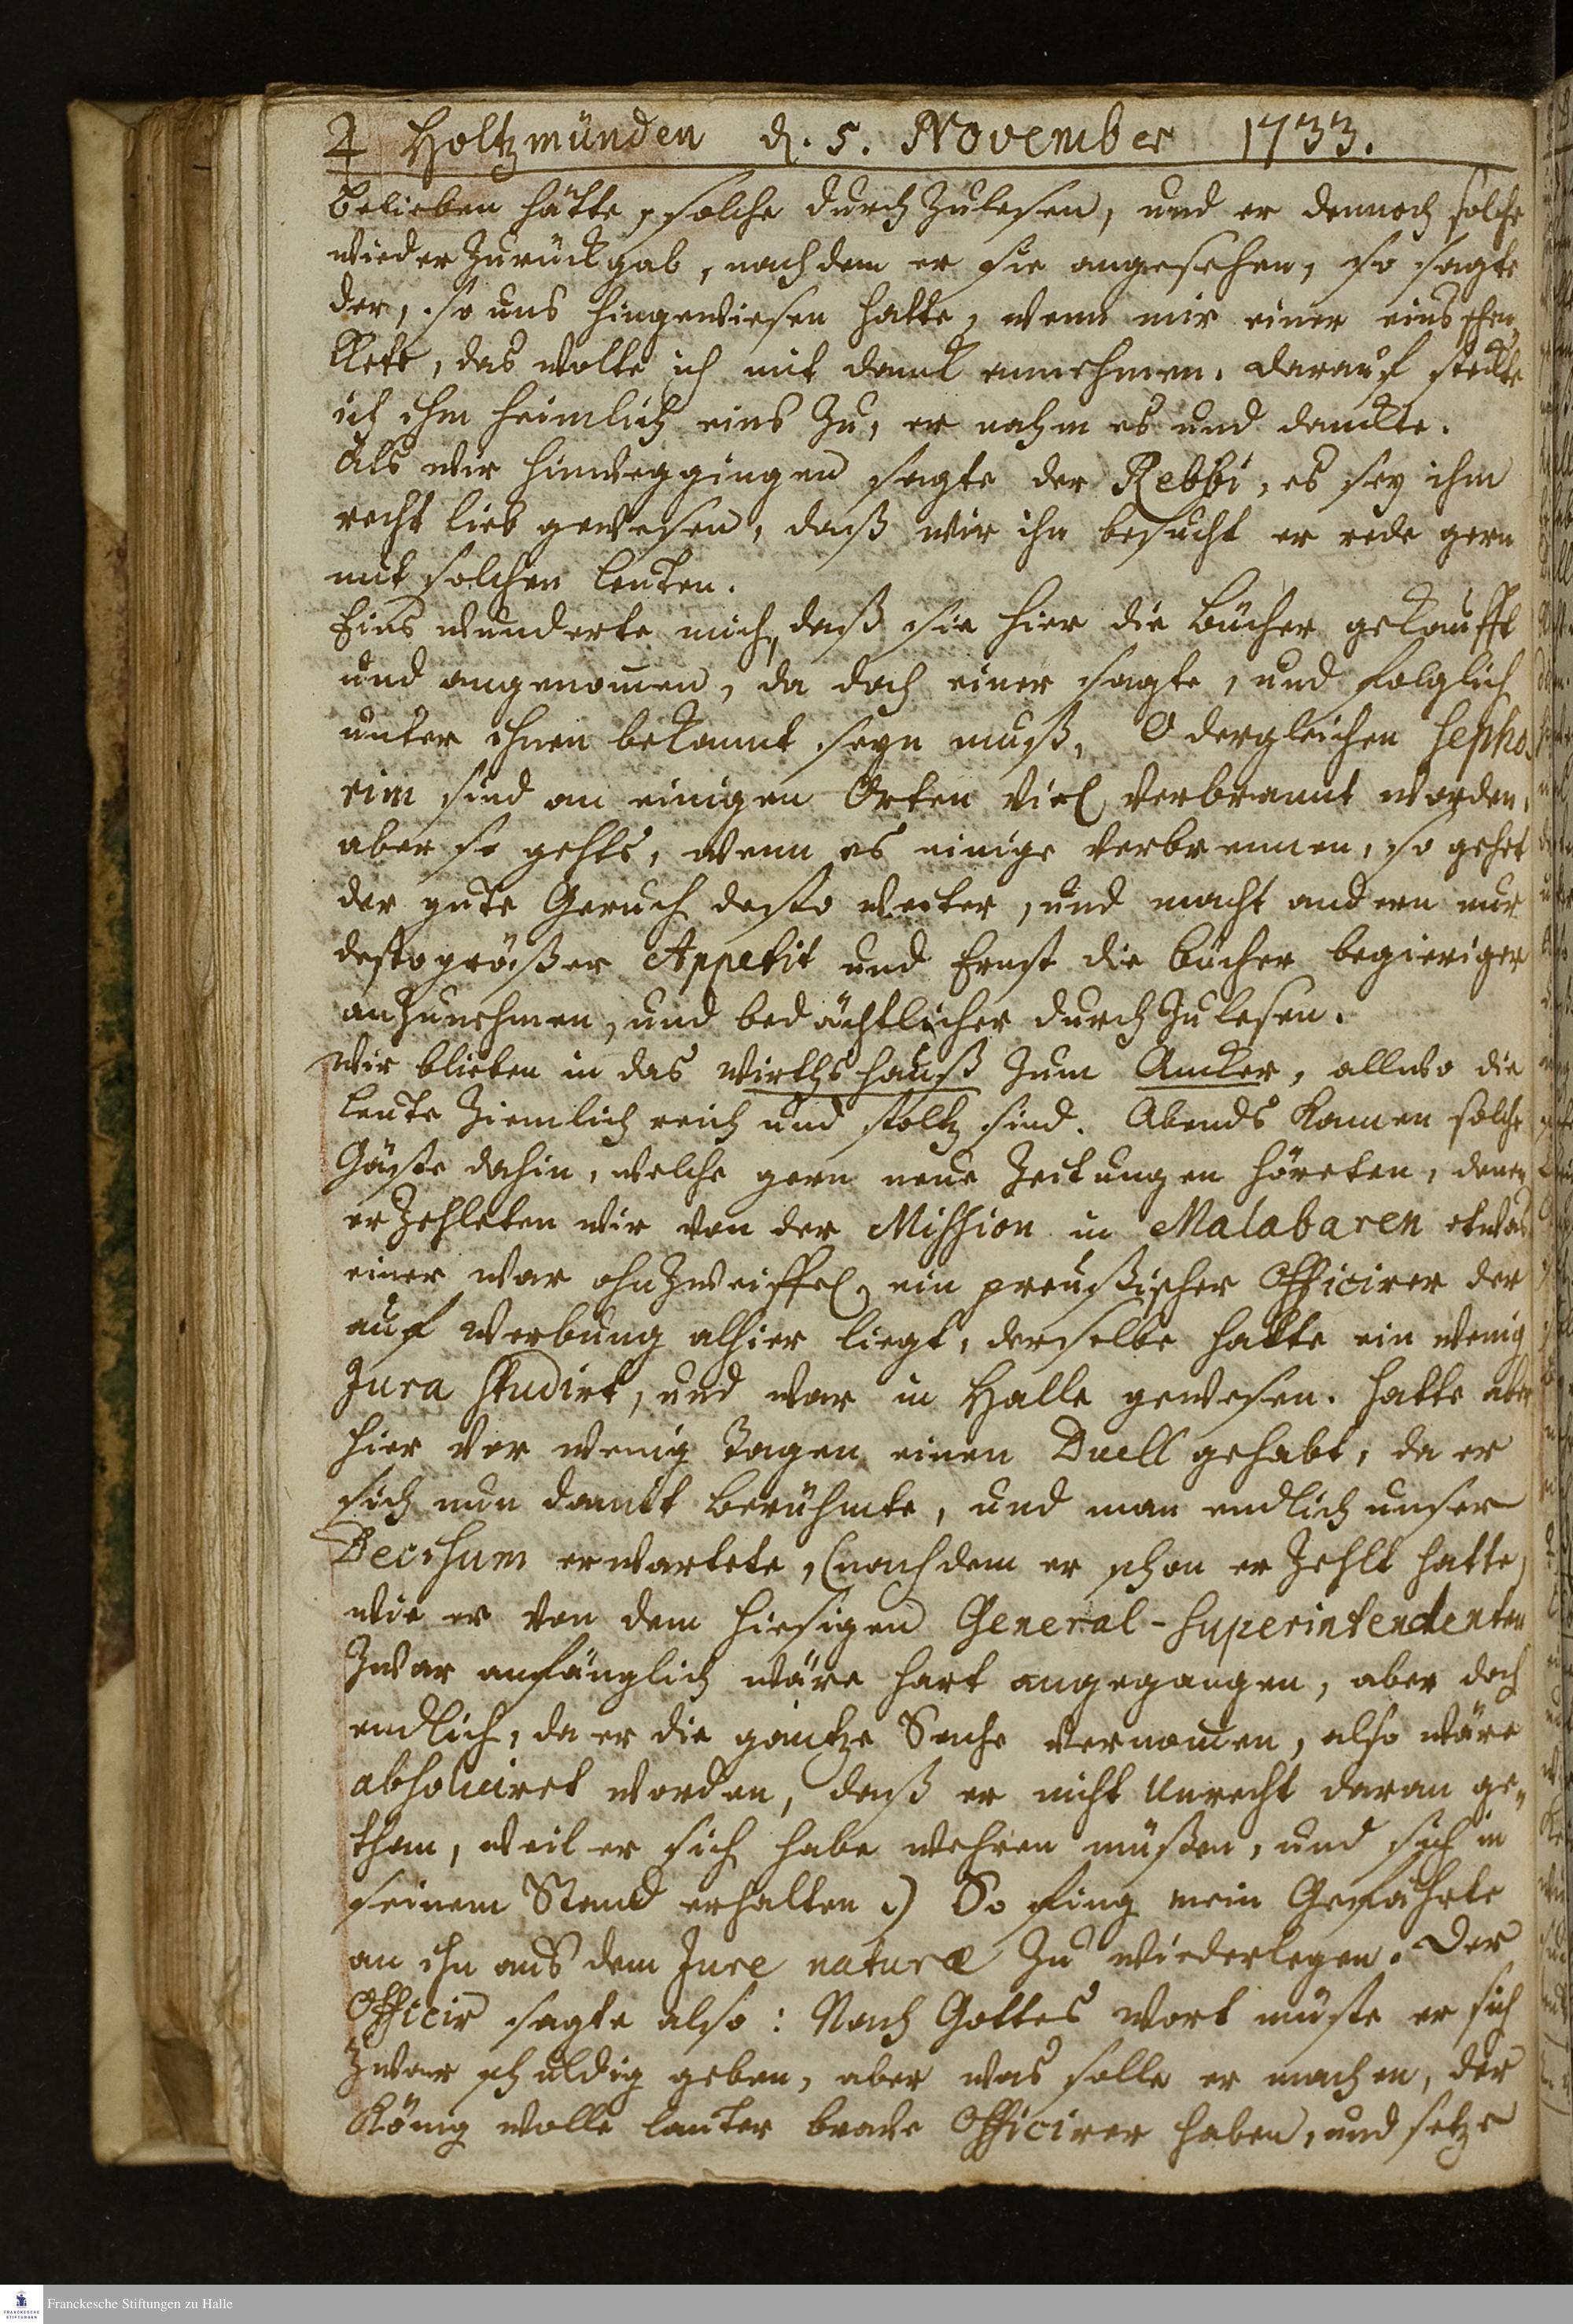 4 Holtzmünden d. 5. November 1733.
belieben hätte, solche durch zulesen, und er dennoch solche
wieder zurückgab, nachdem er sie angesehen, so sagte
der, so uns hingewiesen hatte, wenn mir einer eins schen¬
ckete, das wolte ich mit danck annehmen. darauf steckte
ich ihm heimlich eins zu, er nahm es und danckte.
Als wir hinweggingen sagte der Rebbi, es sey ihm
recht lieb gewesen, daß wir ihn besucht er rede gern
mit solchen leuten.
Eins wunderte mich, daß sie hier die bücher gekaufft
und angenom̄en, da doch einer sagte, und folglich
unter ihnen bekannt seyn muß, O dergleichen Sepho¬
rim sind an einigen Orten viel verbrannt worden,
aber so gehts, wenn es einige verbrennen, so gehet
der gute Geruch desto weiter, und macht andern nur
desto größer Appetit und Ernst die bücher begieriger
anzunehmen, und bedächtlicher durch zulesen.
Wir blieben in das Wirthshauß zum Ancker, allwo die
leute ziemlich reich und stoltz sind. Abends kamen solche
Gäste dahin, welche gern neue Zeitungen höreten, denen
erzehleten wir von der Mission in Malabaren etwas
einer war ohnzweiffel, ein preußischer Officirer der
auf Werbung alhier liegt, derselbe hatte ein wenig
Jura studirt, und war in Halle gewesen. hatte aber
hier vor wenig Tagen einen Duell gehabt, da er
sich nun damit berühmte, und man endlich unser
Decisum erwartete, (nachdem er schon erzehlt hatte,
wie er von dem hiesigen General-Superintendenten
zwar anfänglich wäre hart angegangen, aber doch
endlich, da er die gantze Sache vernom̄en, also wäre
absolviret worden, daß er nicht Unrecht daran ge¬
than, weil er sich habe wehren müßen, und sich in
seinem Stand erhalten.) So fing mein Gefährte
an ihn aus dem Jure naturæ zu wiederlegen. Der
Officir sagte also: Nach Gottes Wort müste er sich
zwar schuldig geben, aber was solle er machen, der
König wolle lauter brave Officirer haben, und setze